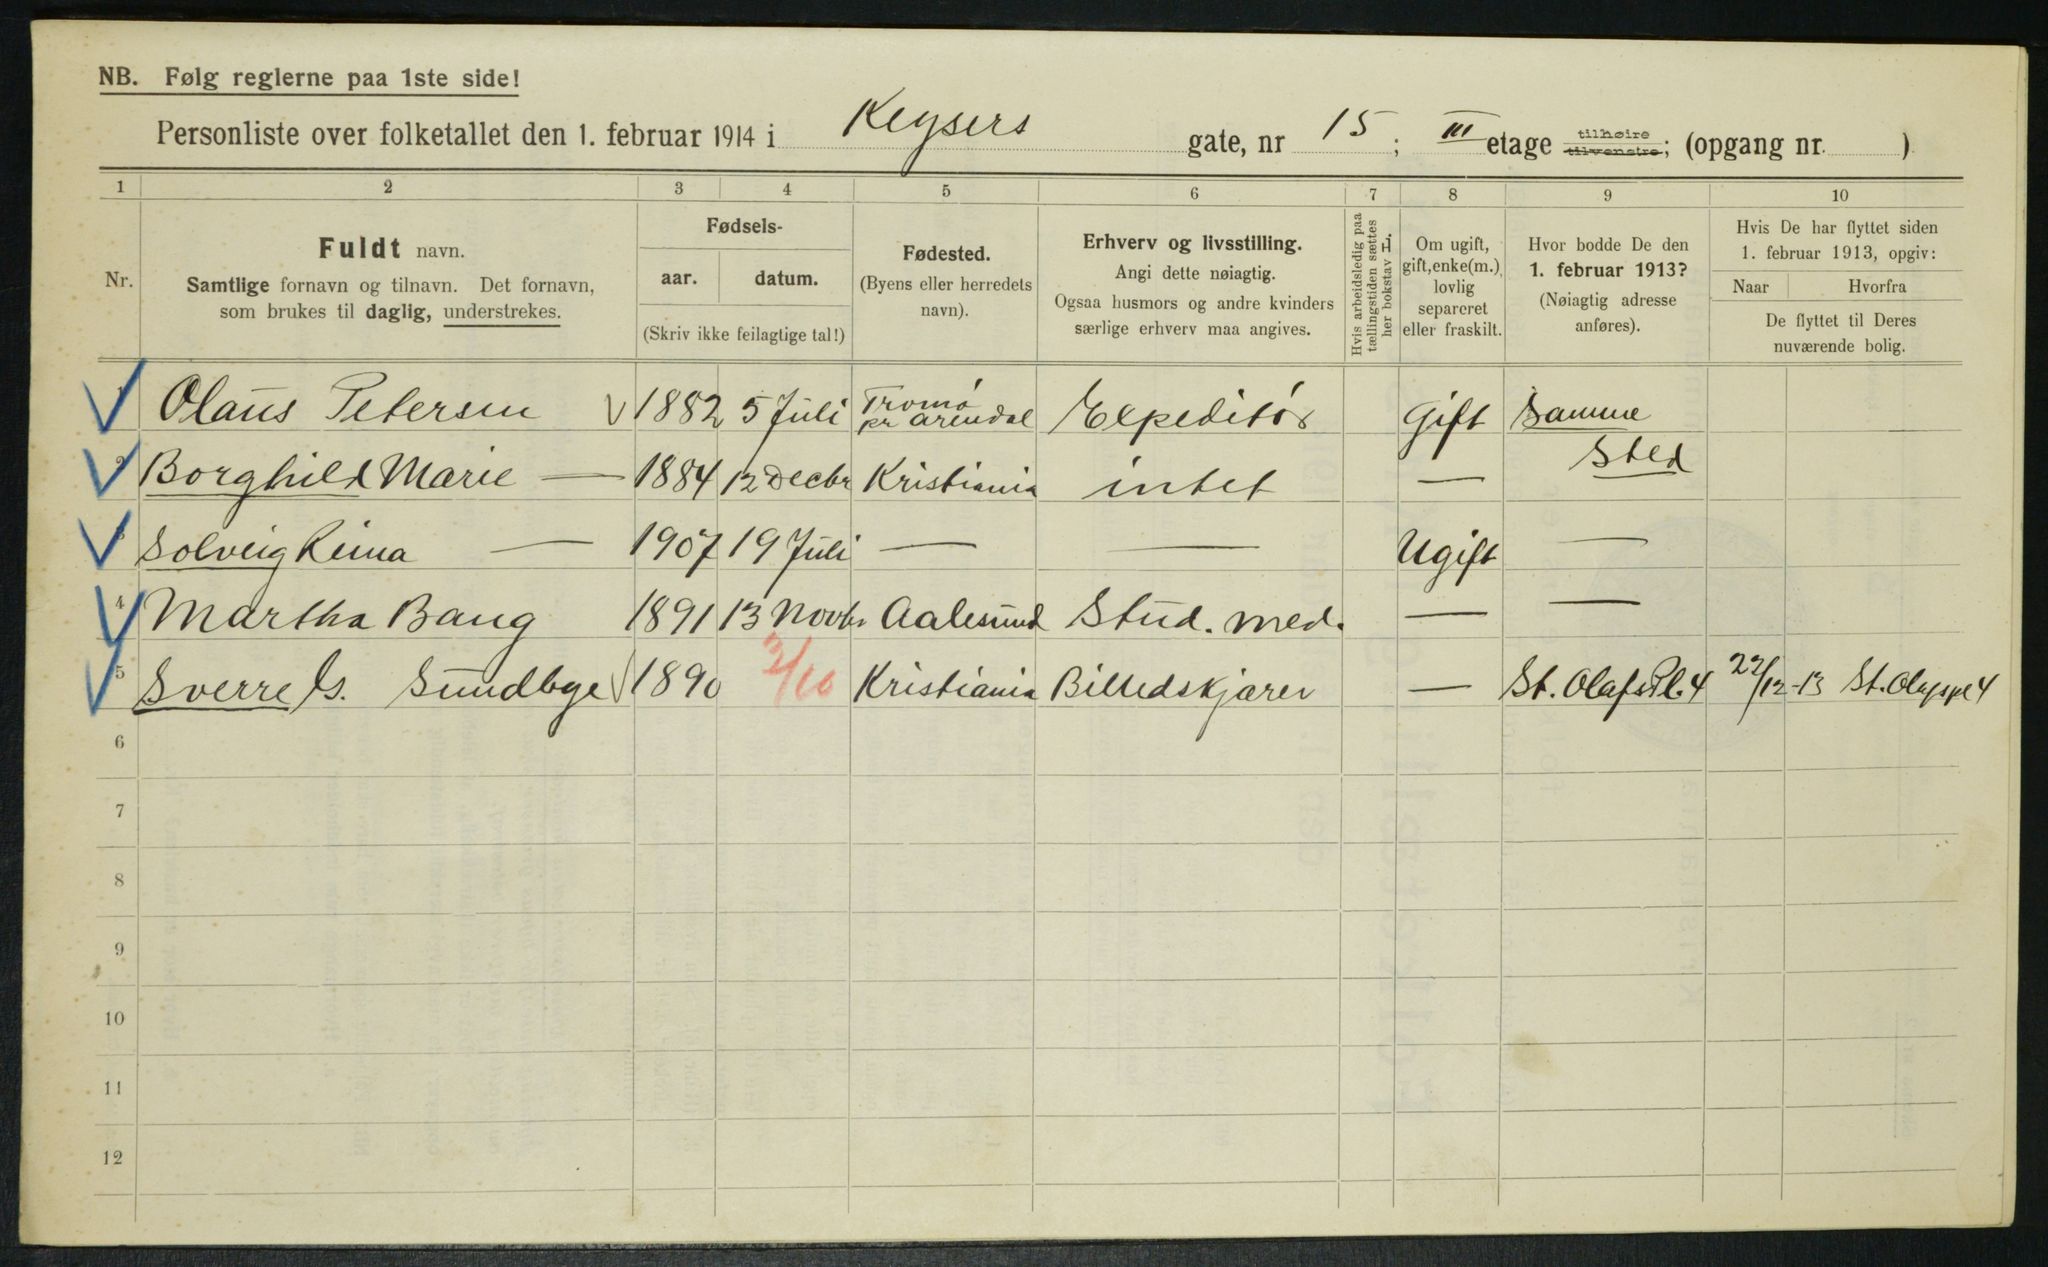 NB. Følg reglerne paa 1ste side!
Personliste over folketallet den 1. februar 1914 i Keysers gate, nr 15; III etage tilhøire tilvenstre; (opgang nr. )
1 2 3 4 5 6 7 8 9 10
Nr.
Fuldt navn.
Samtlige fornavn og tilnavn. Det fornavn,
som brukes til daglig, understrekes.
Fødsels-
aar. datum.
(Skriv ikke feilagtige tal!)
Fødested.
(Byens eller herredets
navn).
Erhverv og livsstilling.
Angi dette nøiagtig.
Ogsaa husmors og andre kvinders
særlige erhverv maa angives.
Hvis arbeidsledig paa
tællingstiden sættes
her bokstav L.
Om ugift,
gift, enke(m.),
lovlig
separeret
eller fraskilt.
Hvor bodde De den
1. februar 1913?
(Nøiagtig adresse
anføres).
Hvis De har flyttet siden
1. februar 1913, opgiv:
Naar Hvorfra
De flyttet til Deres
nuværende bolig.
1 Olaus Petersen 1882 5 Juli Tromø pr Arendal Expeditør Gift Samme Sted
2 Borghild Marie — 1884 12 Decbr Kristiania intet —
3 Solveig — 1907 19 Juli — — Ugift —
4 Martha Bang 1891 13 Novbr Aalesund Stud. med. — —
5 Sverre Sundbye 1890 2/10 Kristiania Billedskjærer — St. Olafs Pl. 4 22/12-13 St. Olafspl 4
6
7
8
9
10
11
12